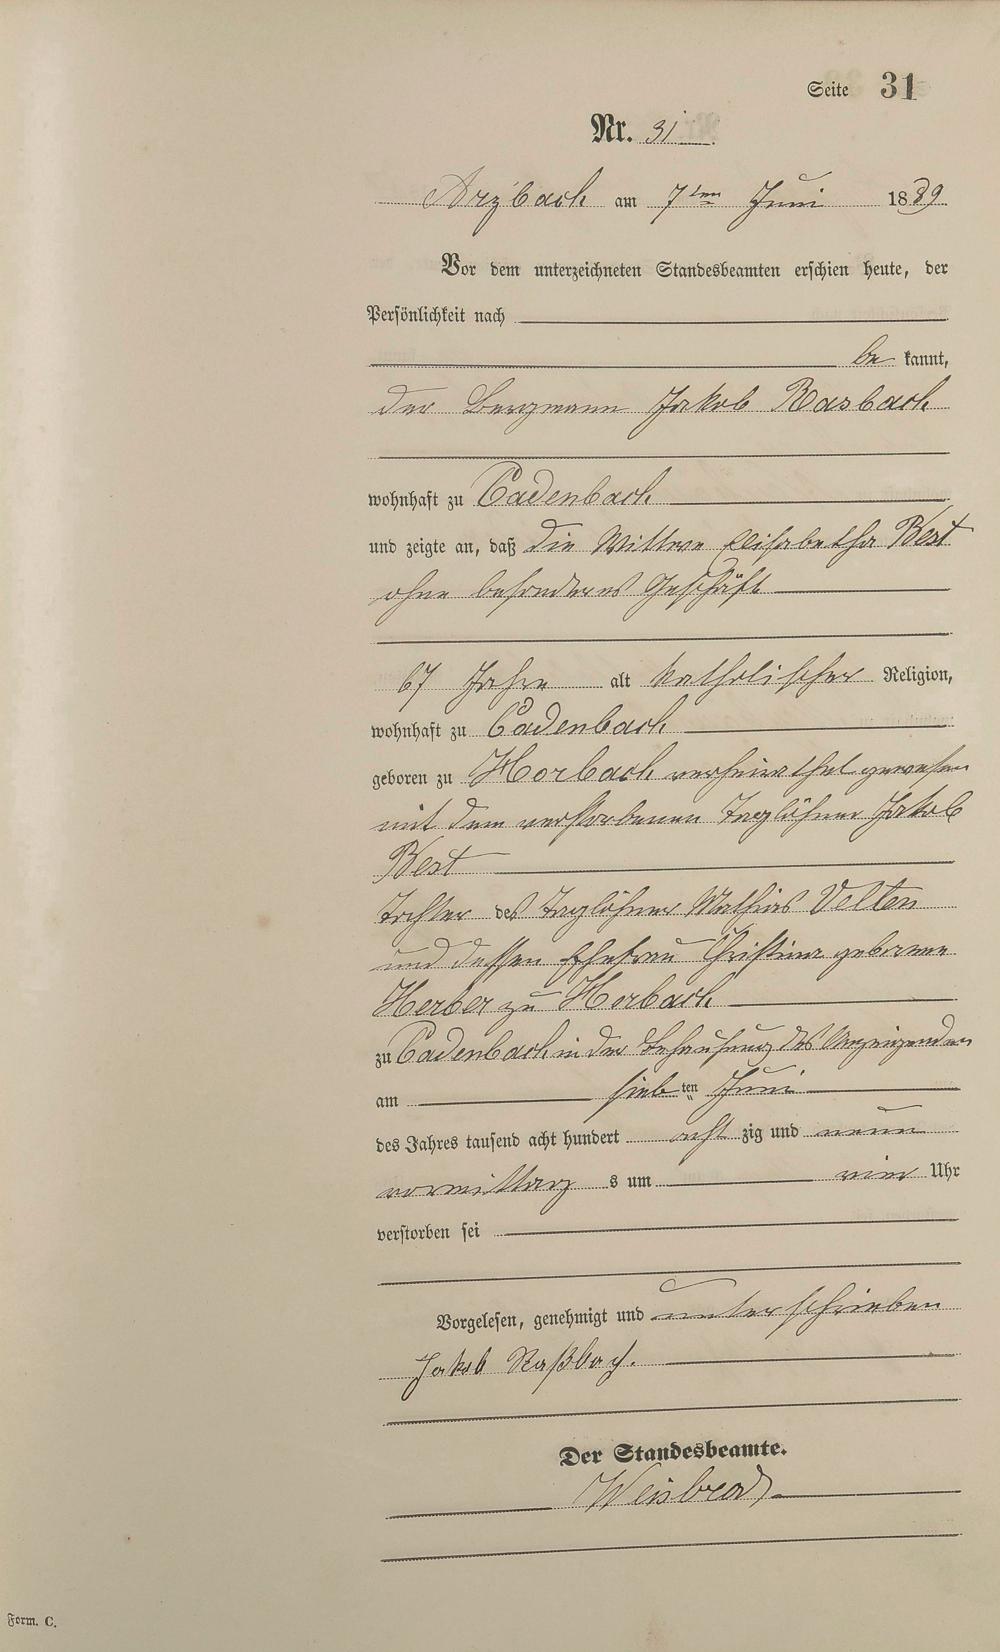 Seite 31
Nr. 31
Arzbach am 7ten Juni 1889
Vor dem unterzeichneten Standesbeamten erschien heute, der
Persönlichkeit nach
be kannt,
der Bergmann Jakob Rasbach
wohnhaft zu Cadenbach
und zeigte an, daß die Wittwe Elisabetha Best
ohne besonderes Geschäft
67 Jahre alt katholischer Religion,
wohnhaft zu Cadenbach
geboren zu Horbach verheirathet gewesen
mit dem verstorbenen Taglöhner Jakob
Best
Tochter des Taglöhner Mathias Velten
und dessen Ehefrau Christina geborene
Herber zu Horbach
zu Cadenbach in der Behausung des Anzeigenden
am siebten Juni
des Jahres tausend acht hundert acht zig und neun
vormittag s um vier Uhr
verstorben sei
Vorgelesen, genehmigt und unterschrieben
Jakob Raßbach.
Der Standesbeamte.
Weisbrod
Form. C.